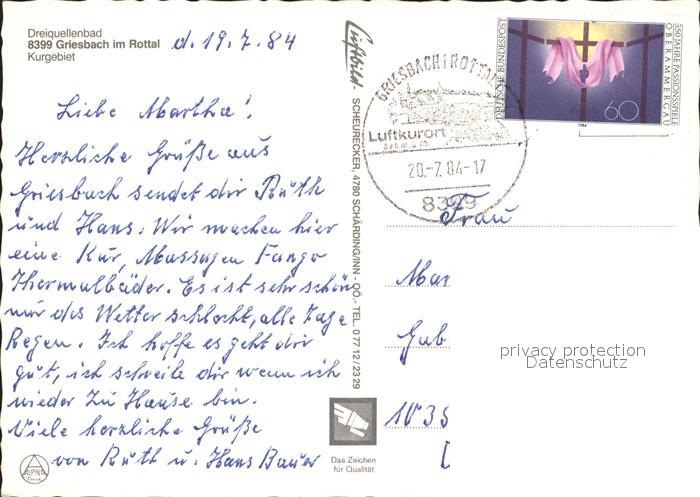 Dreiquellenbad
8399 Griesbach im Rottal
Kurgebiet
d. 19.7.84
Liebe Martha!
Herzliche Grüße aus
Griesbach sendet dir Ruth
und Hans. Wir machen hier
eine Kur, Massagen Fango
Thermalbäder. Es ist sehr schön
nur das Wetter schlecht, alle Tage
Regen. Ich hoffe es geht dir
gut, ich schreibe dir wenn ich
wieder zu Hause bin.
Viele herzliche Grüße
von Ruth u. Hans Bauer
ALPINA
Luftbild
SCHEURECKER, 4780 SCHÄRDING/INN - OÖ.- TEL. 0 77 12 / 23 29
Das Zeichen
für Qualität
GRIESBACH i ROTTAL
Luftkurort
20.-7.84-17
8399
DEUTSCHE BUNDESPOST
550 JAHRE PASSIONSSPIELE
OBERAMMERGAU
60
1984
Frau
Mar
Gub
1035
privacy protection
Datenschutz